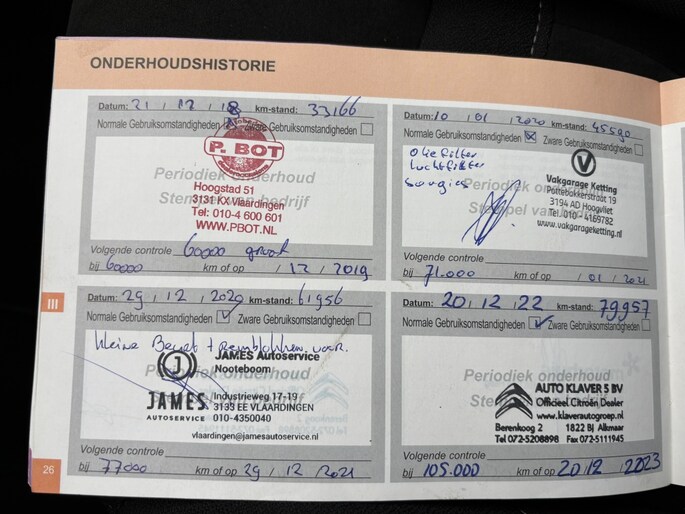 ONDERHOUDSHISTORIE
Datum: 21 / 12 / 18 km-stand: 33166
Normale Gebruiksomstandigheden Zware Gebruiksomstandigheden
P. BOT
Periodiek onderhoud
Hoogstad 51
3131 KX Vlaardingen
Tel: 010-4 600 601
WWW.PBOT.NL
Volgende controle 60000 groot
bij 60000 km of op / 12 / 2019
Datum: 10 / 01 / 2020 km-stand: 45590
Normale Gebruiksomstandigheden Zware Gebruiksomstandigheden
Oliefilter
Luchtfilter
Periodiek onderhoud
Stempel van bedrijf
Vakgarage Ketting
Pottebakkerstraat 19
3194 AD Hoogvliet
Tel. 010 - 4169782
www.vakgarageketting.nl
Volgende controle
bij 71.000 km of op / 01 / 2021
III
Datum: 29 / 12 / 2020 km-stand: 61956
Normale Gebruiksomstandigheden Zware Gebruiksomstandigheden
kleine Beurt + Remblokken voor.
JAMES Autoservice
Nooteboom
Periodiek onderhoud
JAMES
AUTOSERVICE
Industrieweg 17-19
3133 EE VLAARDINGEN
010-4350040
vlaardingen@jamesautoservice.nl
Volgende controle
bij 77000 km of op 29 / 12 / 2021
Datum: 20 / 12 / 22 km-stand: 79957
Normale Gebruiksomstandigheden Zware Gebruiksomstandigheden
Periodiek onderhoud
AUTO KLAVER 5 BV
Officieel Citroën Dealer
www.klaverautogroep.nl
Berenkoog 2 1822 BJ Alkmaar
Tel 072-5208898 Fax 072-5111945
Volgende controle
bij 105.000 km of op 20 / 12 / 2023
26